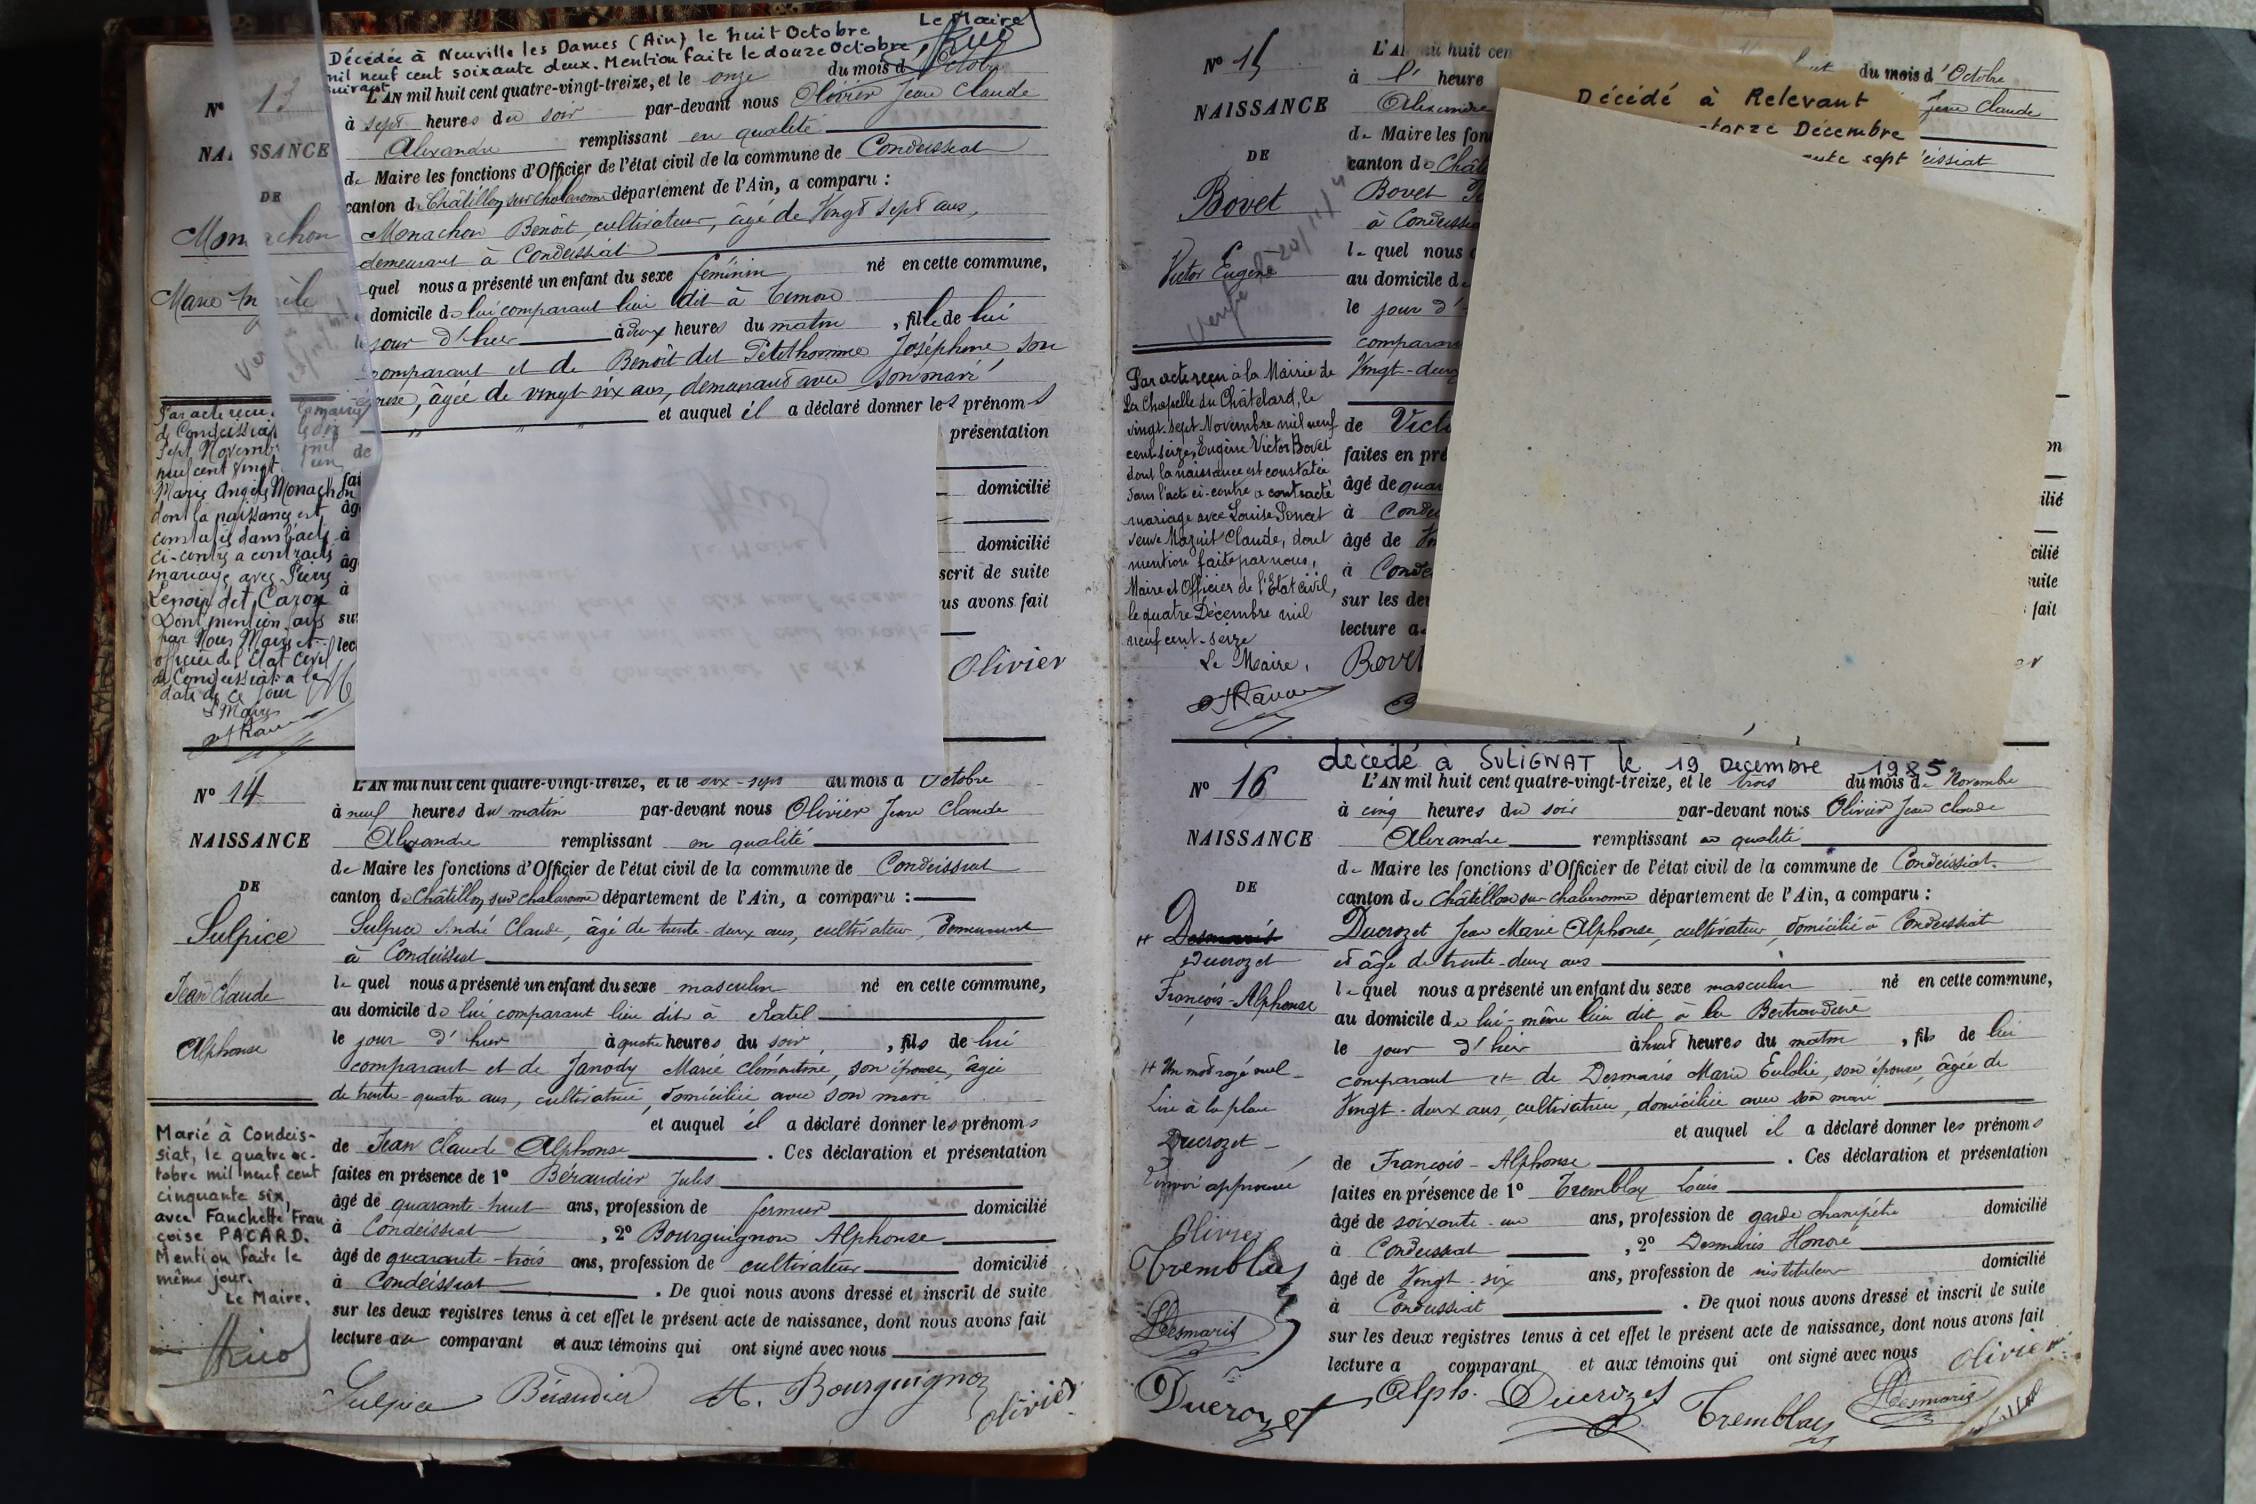 Le Maire
Décédée à Neuville les Dames (Ain) le huit Octobre
mil neuf cent soixante deux. Mention faite le douze Octobre
suivant
L'AN mil huit cent quatre-vingt-treize, et le onze du mois d'Octobre
N° 13
à sept heures du soir par-devant nous Olivier Jean Claude
Alexandre remplissant en qualité
NAISSANCE
de Maire les fonctions d'Officier de l'état civil de la commune de Condeissiat
DE
canton de Châtillon sur Chalaronne département de l'Ain, a comparu :
Monachon
Monachon Benoît, cultivateur, âgé de Vingt sept ans,
demeurant à Condeissiat
quel nous a présenté un enfant du sexe féminin né en cette commune,
Marie
domicile de lui comparant lieu dit à Timon
le jour d'hier à deux heures du matin, fille de lui
comparant et de Benoît dit Petithomme Joséphine son
épouse, âgée de vingt six ans, demeurant avec son mari
et auquel il a déclaré donner les prénoms
présentation
domicilié
domicilié
scrit de suite
us avons fait
Olivier
Par acte reçu
de Condeissiat
sept Novemb
neuf cent vingt
Marie Angèle Monachon
dont la naissance est
constatée dans l'acte
ci-contre a contracté
mariage avec Pierre
Lenoir dit Caron
Dont mention faite
par Nous Maire et
officier de l'État civil
de Condeissiat à la
date de ce jour
Le Maire
N° 14
L'AN mil huit cent quatre-vingt-treize, et le dix-sept du mois d'Octobre
à neuf heures du matin par-devant nous Olivier Jean Claude
NAISSANCE
Alexandre remplissant en qualité
de Maire les fonctions d'Officier de l'état civil de la commune de Condeissiat
DE
canton de Châtillon sur Chalaronne département de l'Ain, a comparu :
Sulpice
Sulpice André Claude, âgé de trente-deux ans, cultivateur, demeurant
à Condeissiat
Jean Claude
le quel nous a présenté un enfant du sexe masculin né en cette commune,
au domicile de lui comparant lieu dit à Ratel
Alphonse
le jour d'hier à quatre heures du soir, fils de lui
comparant et de Janody Marie Clémentine, son épouse, âgée
de trente-quatre ans, cultivatrice, domiciliée avec son mari
et auquel il a déclaré donner les prénoms
de Jean Claude Alphonse. Ces déclaration et présentation
faites en présence de 1° Béraudier Jules
âgé de quarante-huit ans, profession de fermier domicilié
à Condeissiat, 2° Bourguignon Alphonse
âgé de quarante-trois ans, profession de cultivateur domicilié
à Condeissiat. De quoi nous avons dressé et inscrit de suite
sur les deux registres tenus à cet effet le présent acte de naissance, dont nous avons fait
lecture au comparant et aux témoins qui ont signé avec nous
Marié à Condeis-
siat, le quatre oc-
tobre mil neuf cent
cinquante six,
avec Fanchette Fran
çoise PACARD.
Mention faite le
même jour.
Le Maire.
Sulpice Béraudier A. Bourguignon Olivier
N° 15
L'AN mil huit cen
du mois d'Octobre
à l' heure
Jean Claude
NAISSANCE
Alexandre
de Maire les fon
DE
canton de Chât
Bovet
Bovet
à Condeissia
le quel nous
Victor Eugène
au domicile de
le jour d'
comparan
Vingt-deux
de Vict
faites en pré
âgé de quar
à Conde
âgé de
à Conde
sur les de
lecture a
Bovet
Décédé à Relevant
torze Décembre
sept
Par acte reçu à la Mairie de
La Chapelle du Châtelard, le
vingt-sept Novembre mil neuf
cent-seize, Eugène Victor Bovet
dont la naissance est constatée
dans l'acte ci-contre a contracté
mariage avec Louise Poncet
veuve Mazuit Claude, dont
mention faite par nous,
Maire et Officier de l'Etat civil,
le quatre Décembre mil
neuf cent-seize
Le Maire,
décédé à SULIGNAT le 19 Décembre 1985
N° 16
L'AN mil huit cent quatre-vingt-treize, et le trois du mois de Novembre
à cinq heures du soir par-devant nous Olivier Jean Claude
NAISSANCE
Alexandre remplissant en qualité
de Maire les fonctions d'Officier de l'état civil de la commune de Condeissiat
DE
canton de Châtillon sur Chalaronne département de l'Ain, a comparu :
Desmaris
Ducrozet Jean Marie Alphonse, cultivateur, domicilié à Condeissiat
Ducrozet
et âgé de trente-deux ans
François-Alphonse
le quel nous a présenté un enfant du sexe masculin né en cette commune,
au domicile de lui-même lieu dit à la Bertrandière
le jour d'hier à huit heures du matin, fils de lui
comparant et de Desmaris Marie Eulalie, son épouse, âgée de
Vingt-deux ans, cultivatrice, domiciliée avec son mari
et auquel il a déclaré donner les prénoms
de François-Alphonse. Ces déclaration et présentation
faites en présence de 1° Tremblay Louis
âgé de soixante-un ans, profession de garde champêtre domicilié
à Condeissiat, 2° Desmaris Honoré
âgé de Vingt-six ans, profession de instituteur domicilié
à Condeissiat. De quoi nous avons dressé et inscrit de suite
sur les deux registres tenus à cet effet le présent acte de naissance, dont nous avons fait
lecture a comparant et aux témoins qui ont signé avec nous
Un mot rayé nul
Lire à la place
Ducrozet
Renvoi approuvé
Olivier
Tremblay
Desmaris
Ducrozet Alph. Ducrozet Tremblay Desmaris Olivier